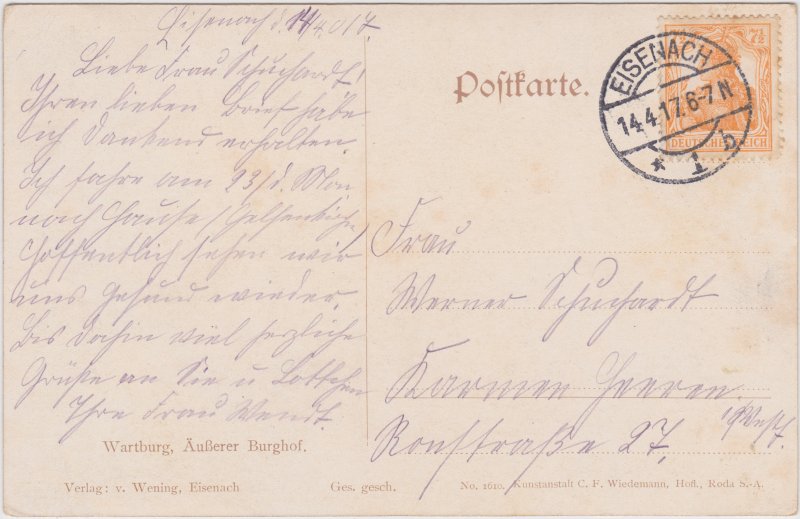 Eisenach d. 14/4.017.
Liebe Frau Schuchardt!
Ihren lieben Brief habe
ich dankend erhalten.
Ich fahre am 23/d. Mon
nach Hause /Gelsenkirchn
Hoffentlich sehen wir
uns gesund wieder.
Bis dahin viel herzliche
Grüße an Sie u Lottchen
Ihre Frau Wendt.
Wartburg, Äußerer Burghof.
Verlag: v. Wening, Eisenach
Ges. gesch.
Postkarte.
7½
EISENACH
14.4.17.6-7N
* 1 b
DEUTSCHES REICH
Frau
Werner Schuchardt
Barmen Heeren
Ronstraße 27.
Westf.
No. 1610. Kunstanstalt C. F. Wiedemann, Hofl., Roda S.-A.